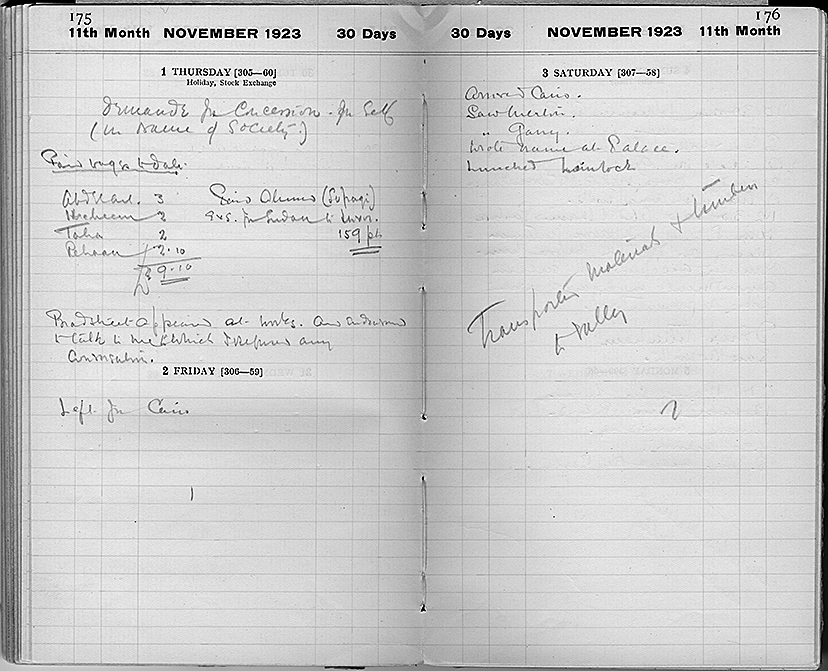 175
11th Month NOVEMBER 1923 30 Days
1 THURSDAY [305—60]
Holiday, Stock Exchange
Demands for Concession for Self
(in Name of Society)
Paid wages to date
Abdelaal. 3
2
Taha 2
2.10
£ 9.10
Paid Ahmed (Sufragi)
exs. from Luxor.
159 pt
Bradstreet appeared at works. And endeavoured
to talk to me to which I refused any
conversation.
2 FRIDAY [306—59]
Left for Cairo
1
176
30 Days NOVEMBER 1923 11th Month
3 SATURDAY [307—58]
Arrived Cairo.
Saw Merton.
" Garry.
Wrote name at Palace.
Lunched
Transported Materials & timber
to Valley
2